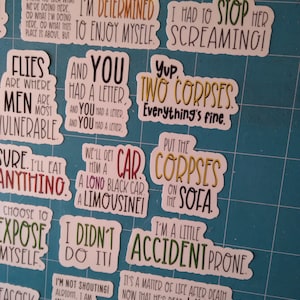 WE'RE DOING HERE,
PLACE IS ABOUT, BUT
I'M DETERMINED
TO ENJOY MYSELF
I HAD TO STOP HER
SCREAMING!
FLIES
ARE WHERE
MEN ARE
MOST
VULNERABLE
AND YOU
HAD A LETTER,
AND YOU HAD A LETTER,
AND YOU HAD A LETTER
Yup,
TWO CORPSES
Everything's fine.
SURE, I'LL EAT
ANYTHING.
WE'LL GET
HIM A CAR.
A LONG BLACK CAR
A LIMOUSINE!
PUT THE
CORPSES
ON THE
SOFA.
CHOOSE TO
EXPOSE
MYSELF
I DIDN'T
DO IT!
I'M A LITTLE
ACCIDENT PRONE
I'M NOT SHOUTING!
ALRIGHT, I AM
IT'S A MATTER OF LIFE AFTER DEATH